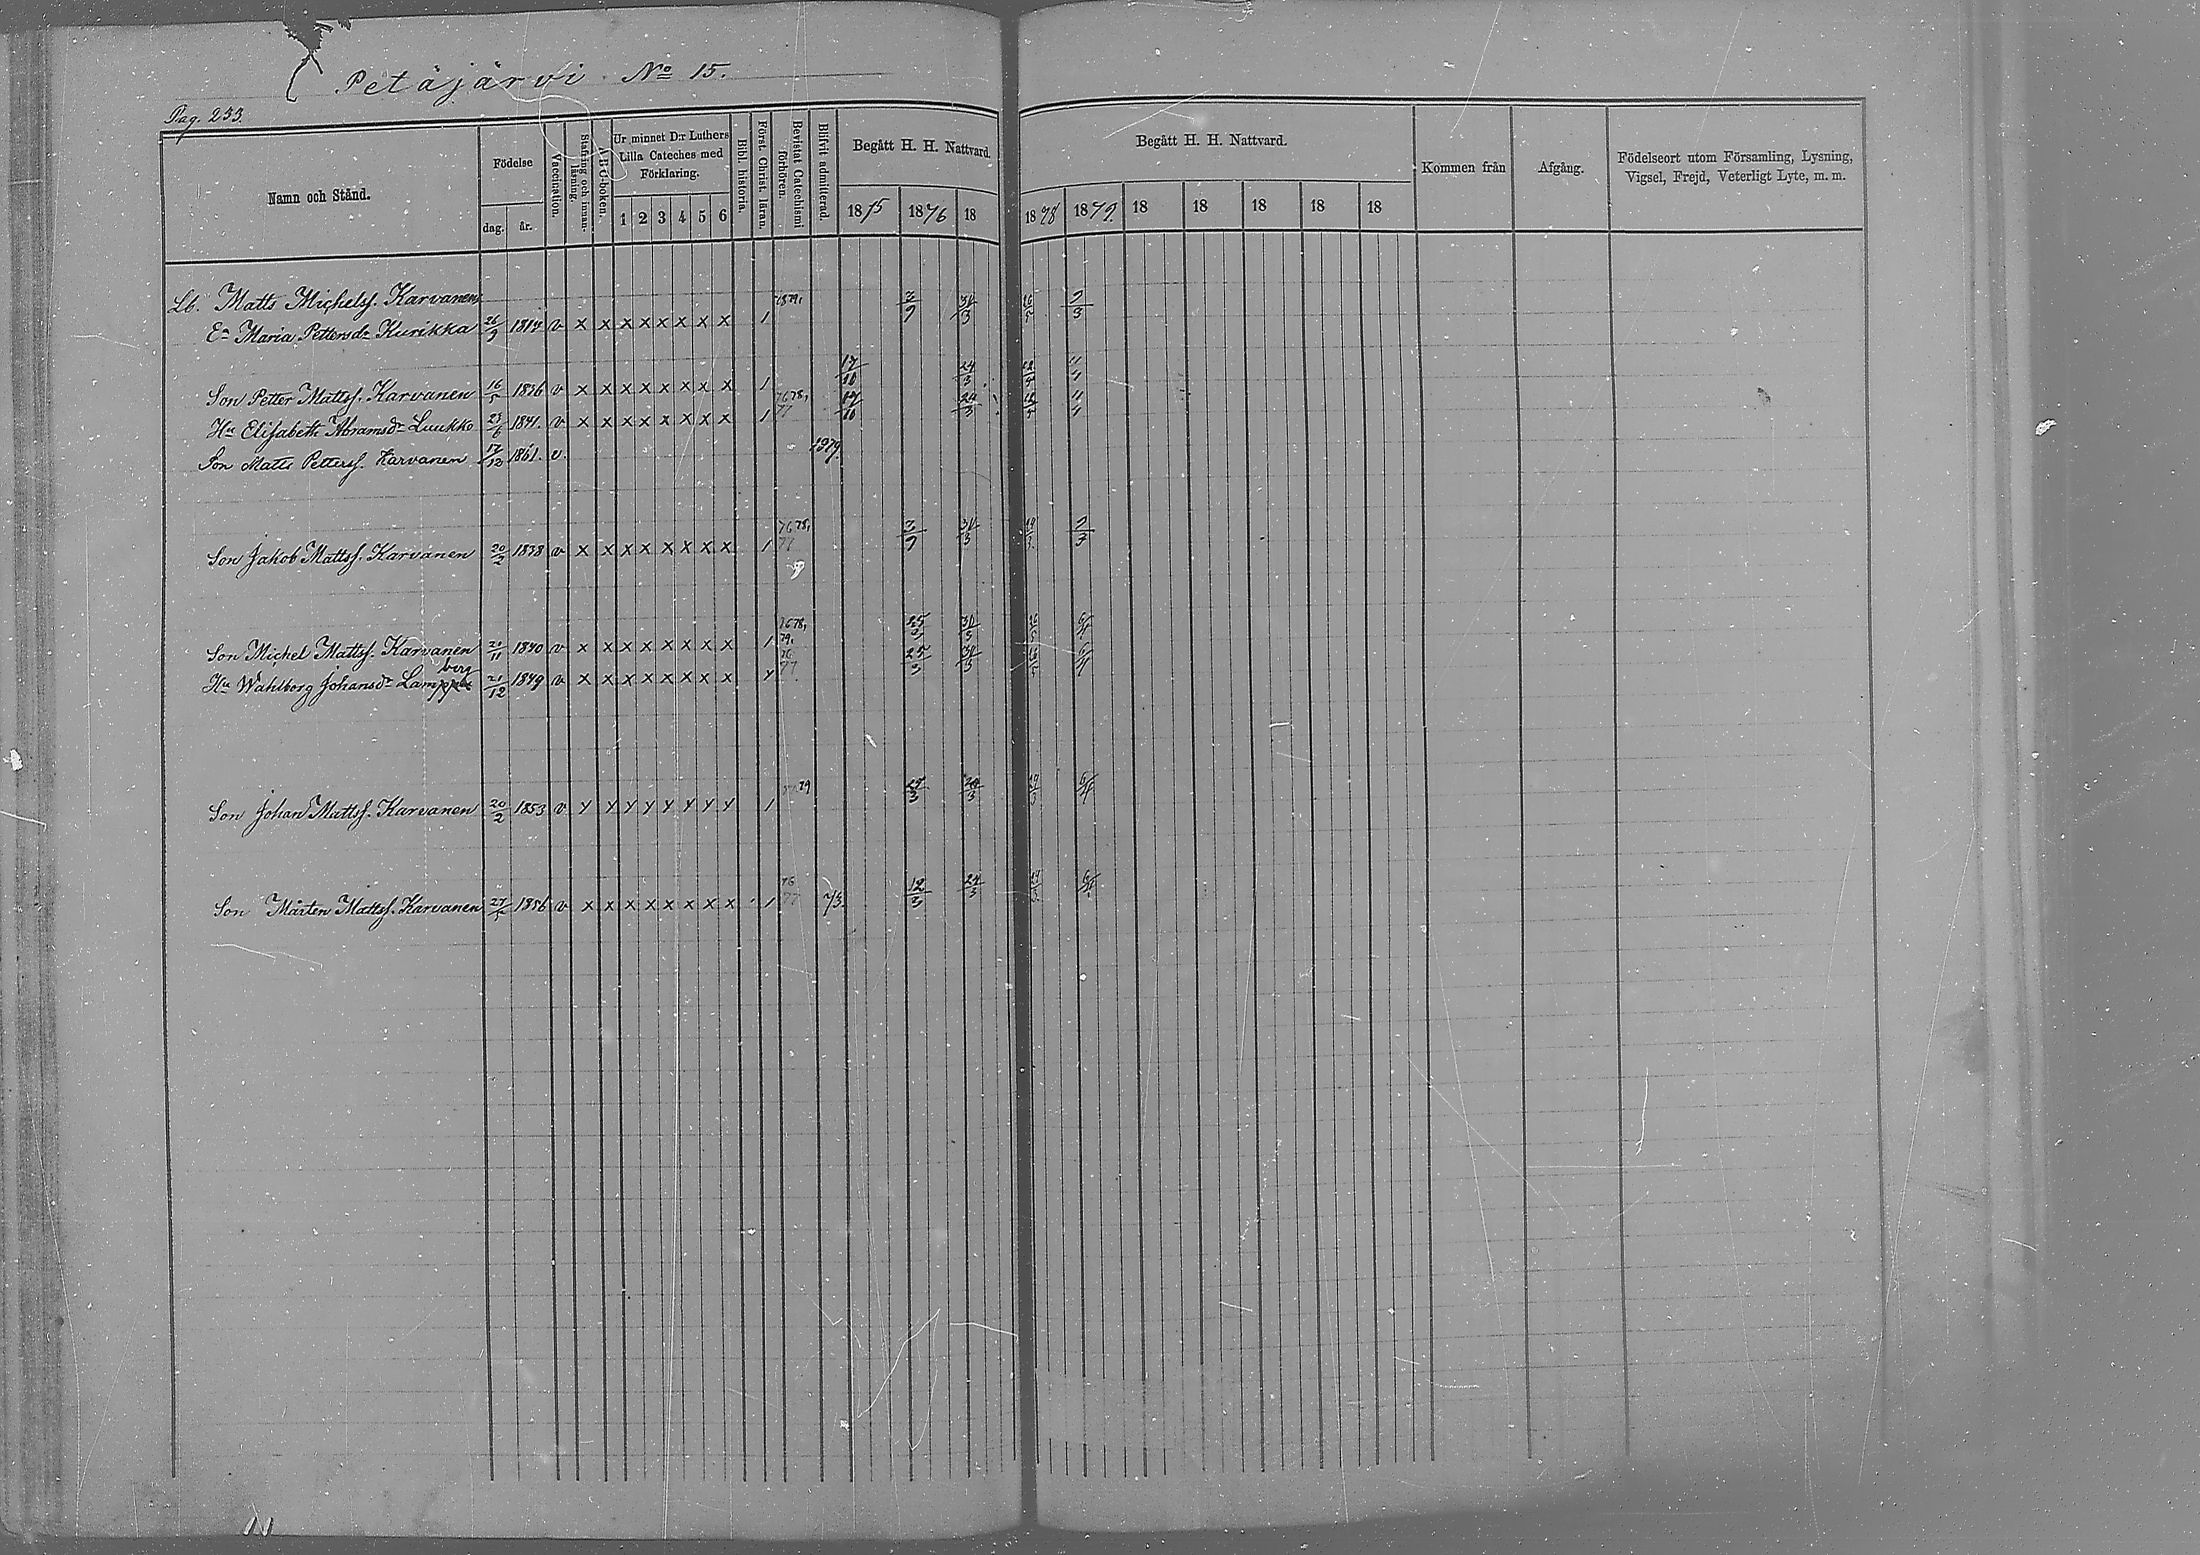 Petäjärvi. No 15.
Pag. 233.
Namn och Stånd.
Födelse
dag. år.
Vaccination.
Stafning och innanläsning.
A B C-boken.
Ur minnet D:r Luthers Lilla Cateches med Förklaring.
1 2 3 4 5 6
Bibl. historia.
Först. Christ. läran.
Bevistat Catechismi förhören.
Blifvit admitterad.
Begått H. H. Nattvard.
1875 1876 18
Begått H. H. Nattvard.
1878 1879. 18 18 18 18 18
Kommen från
Afgång.
Födelseort utom Församling, Lysning, Vigsel, Frejd, Veterligt Lyte, m. m.
Lb. Matts Michelss. Karvanen
Ea Maria Pettersdr Kurikka 26/9 1814 v x x x x x x x x 1 2/9 30/3 26/5
Son Petter Mattss. Karvanen 16/5 1836 v x x x x x x x x 1 17/10 24/3
Hu Elisabeth Abramsdr Luukko 23/6 1841. v x x x x x x x x 1 76 78, 77 17/10 24/3
Son Matts Petterss. Karvanen 17/12 1861. v. 1879.
Son Jakob Mattss. Karvanen 20/2 1838 v x x x x x x x x 1 76 78, 77 2/9 30/3
Son Michel Mattss. Karvanen 21/11 1840 v x x x x x x x x 1 76 78, 79. 25/3 30/3 6/4
Hu Wahlborg Johansdr Lampberg 21/12 1849 v x x x x x x x x 76 77 25/3 30/3 6/4
Son Johan Mattss. Karvanen 20/2 1853 v x x x x x x x x 1 79 6/4
Son Mårten Mattss. Karvanen 1856 v x x x x x x x x 1 76 77 73. 12/3 24/3 6/4